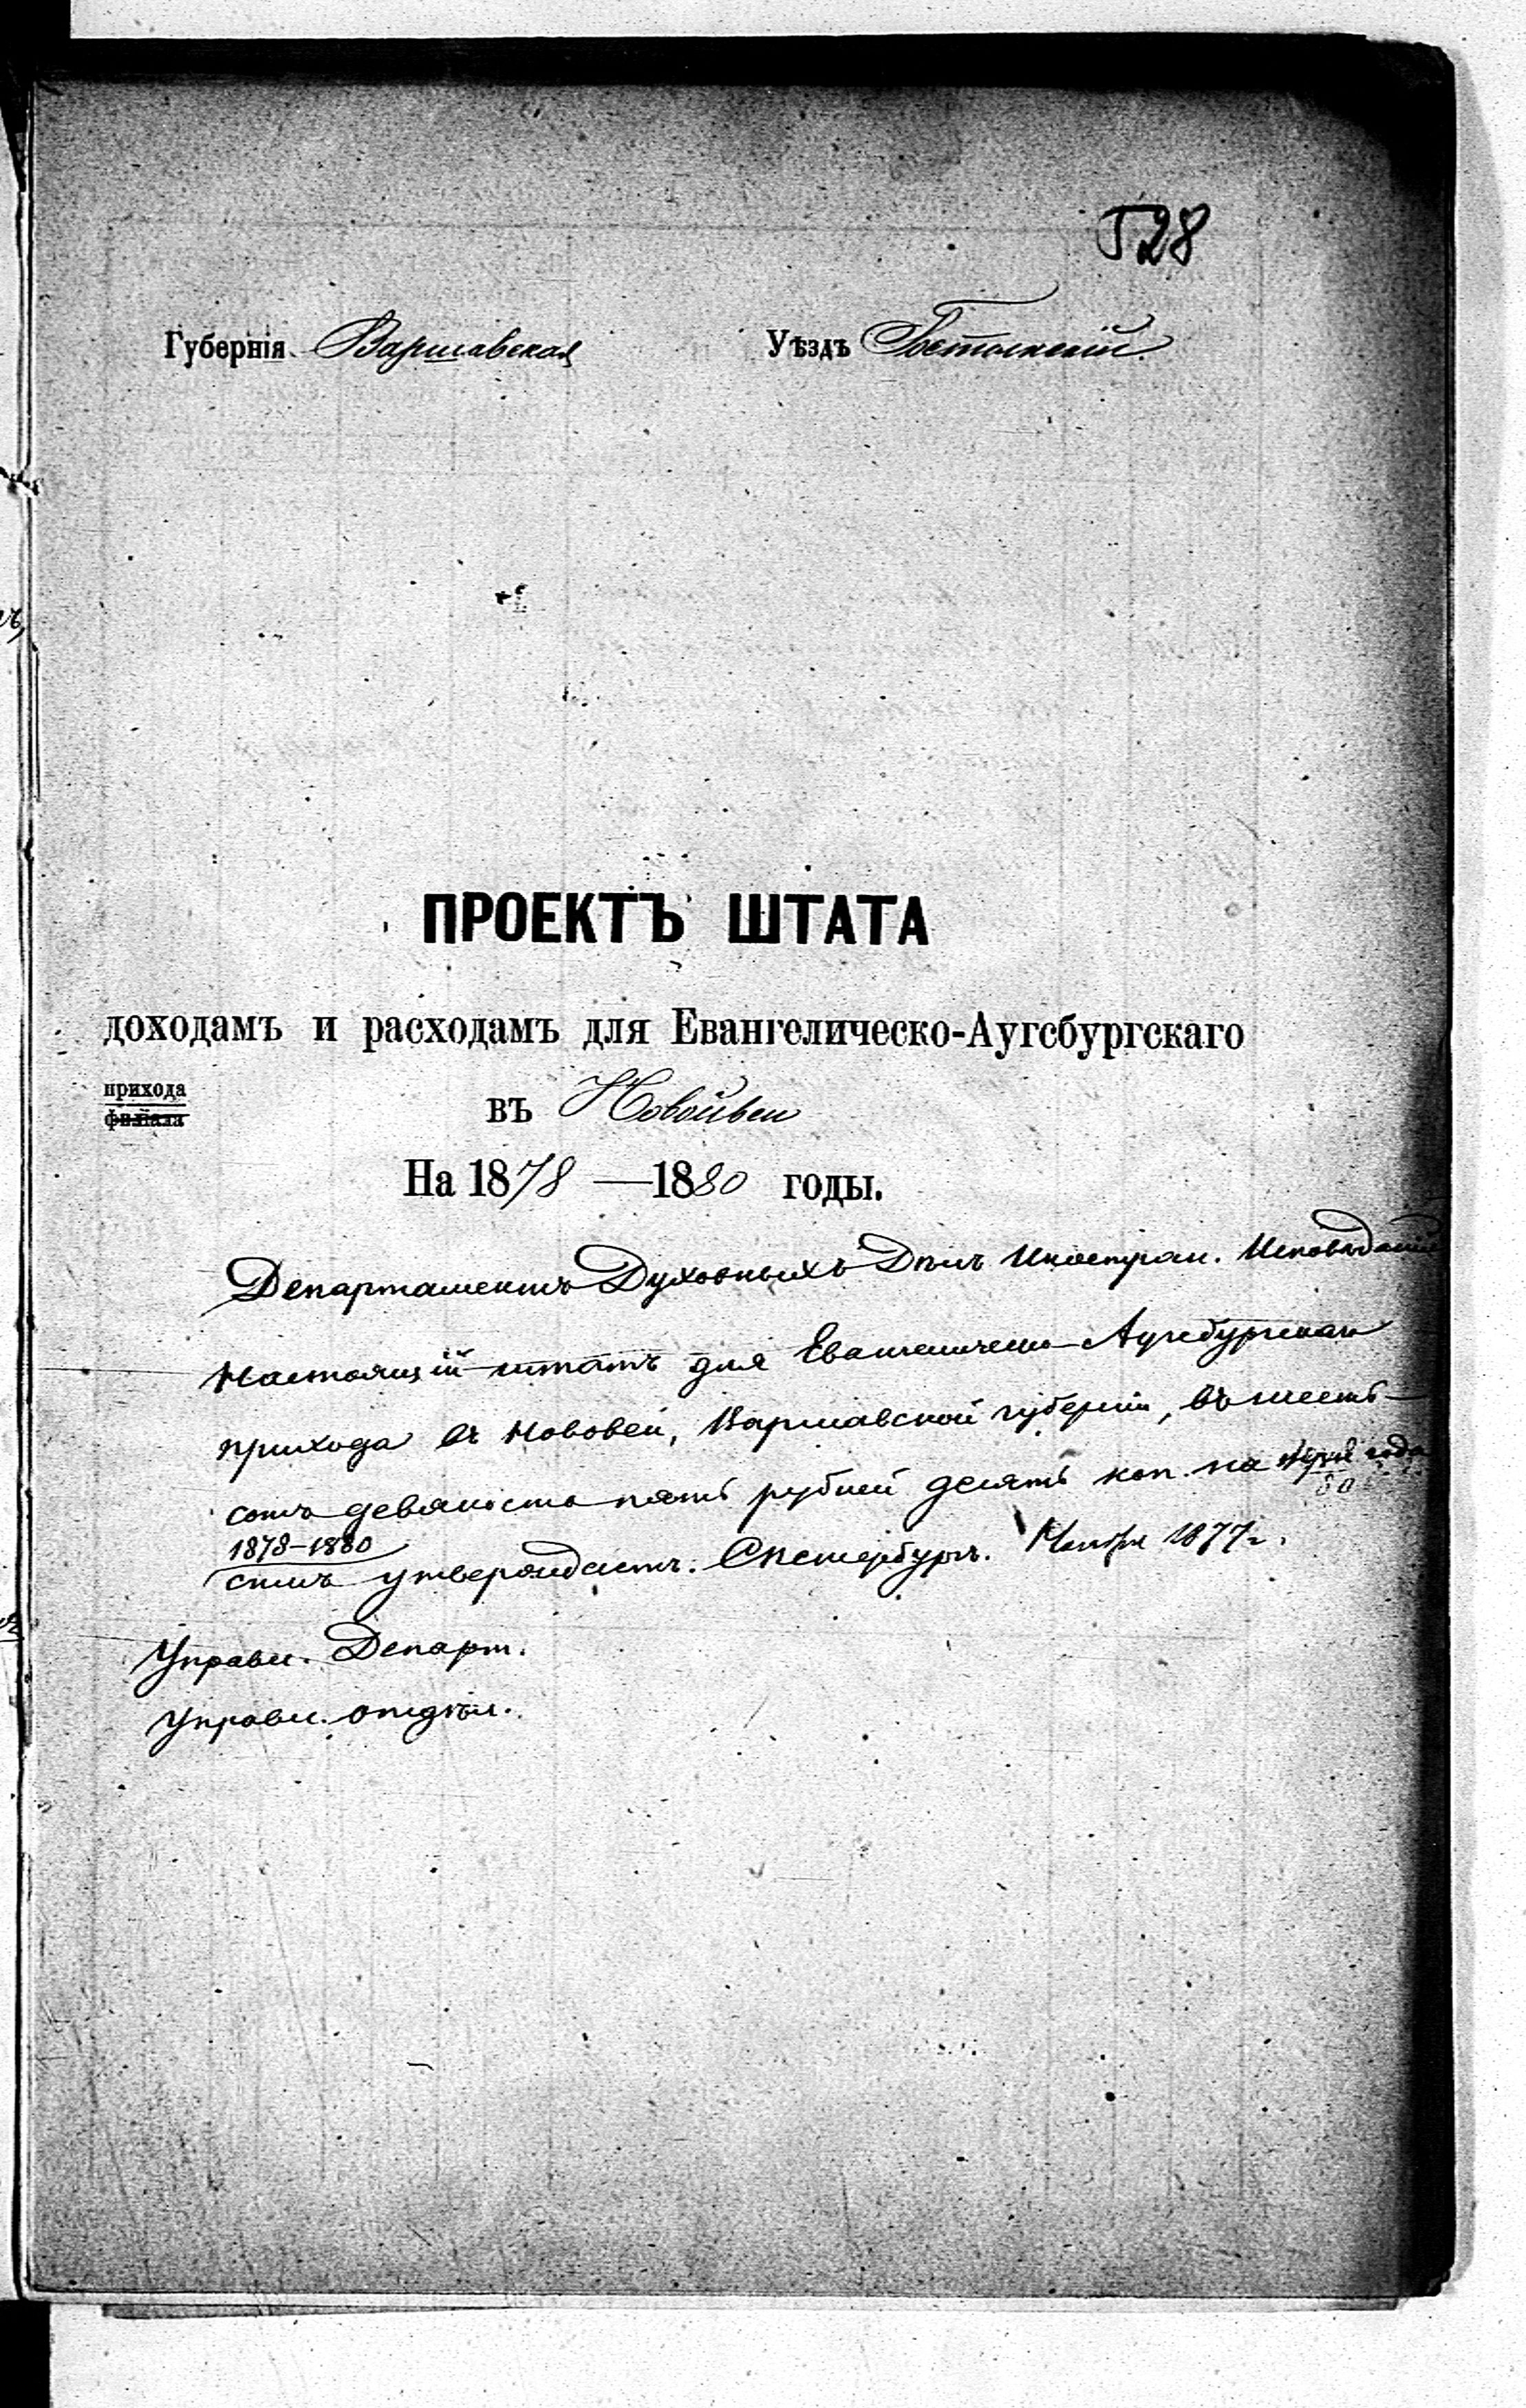 528
Губернія Варшавская Уѣздъ Гостынскій.
ПРОЕКТЪ ШТАТА
доходамъ и расходамъ для Евангелическо-Аугсбургскаго
прихода
филіала
въ Новойвеи
На 1878—1880 годы.
Департаментъ Духовныхъ Дѣлъ Иностран. Исповѣданій
Настоящій штатъ для Евангелическо-Аугсбургскаго
прихода въ Нововеи, Варшавской губерніи, въ шесть-
сотъ девяносто пять рублей десять коп. на года
1878-1880
симъ утверждаетъ. СПетербургъ. 1877 г.
Управл. Департ.
Управл. отдѣл.